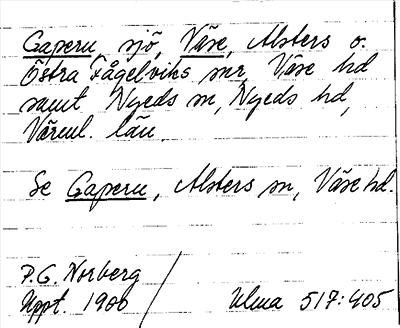 Gapern, sjö, Väse, Alsters o.
Östra Fågelviks snr, Väse hd
samt Nyeds sn, Nyeds hd,
Värml. län.
Se Gapern, Alsters sn, Väse hd.
P.G. Norberg
Uppt. 1906
Ulma 517:405